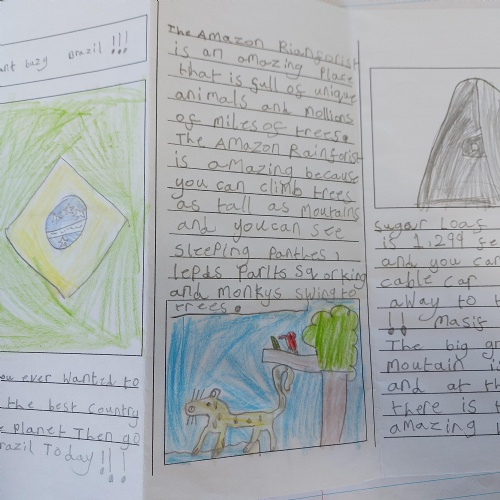 ant buzy Brazil !!!
ever wanted to
the best country
Planet Then go
razil Today !!!
The Amazon Rianforist
is an amazing Place
that is full of unique
animals and mollions
of miles of trees.
The Amazon Rainforist
is amazing because
you can climb trees
as tall as moutains
and you can see
sleeping panthes,
lepds Parits sqorking
and monkys swing to
trees.
Sugar loas
is 1,299 fe
and you can
cable car
away to
!! Masif
The big gr
moutain is
and at th
there is t
amazing